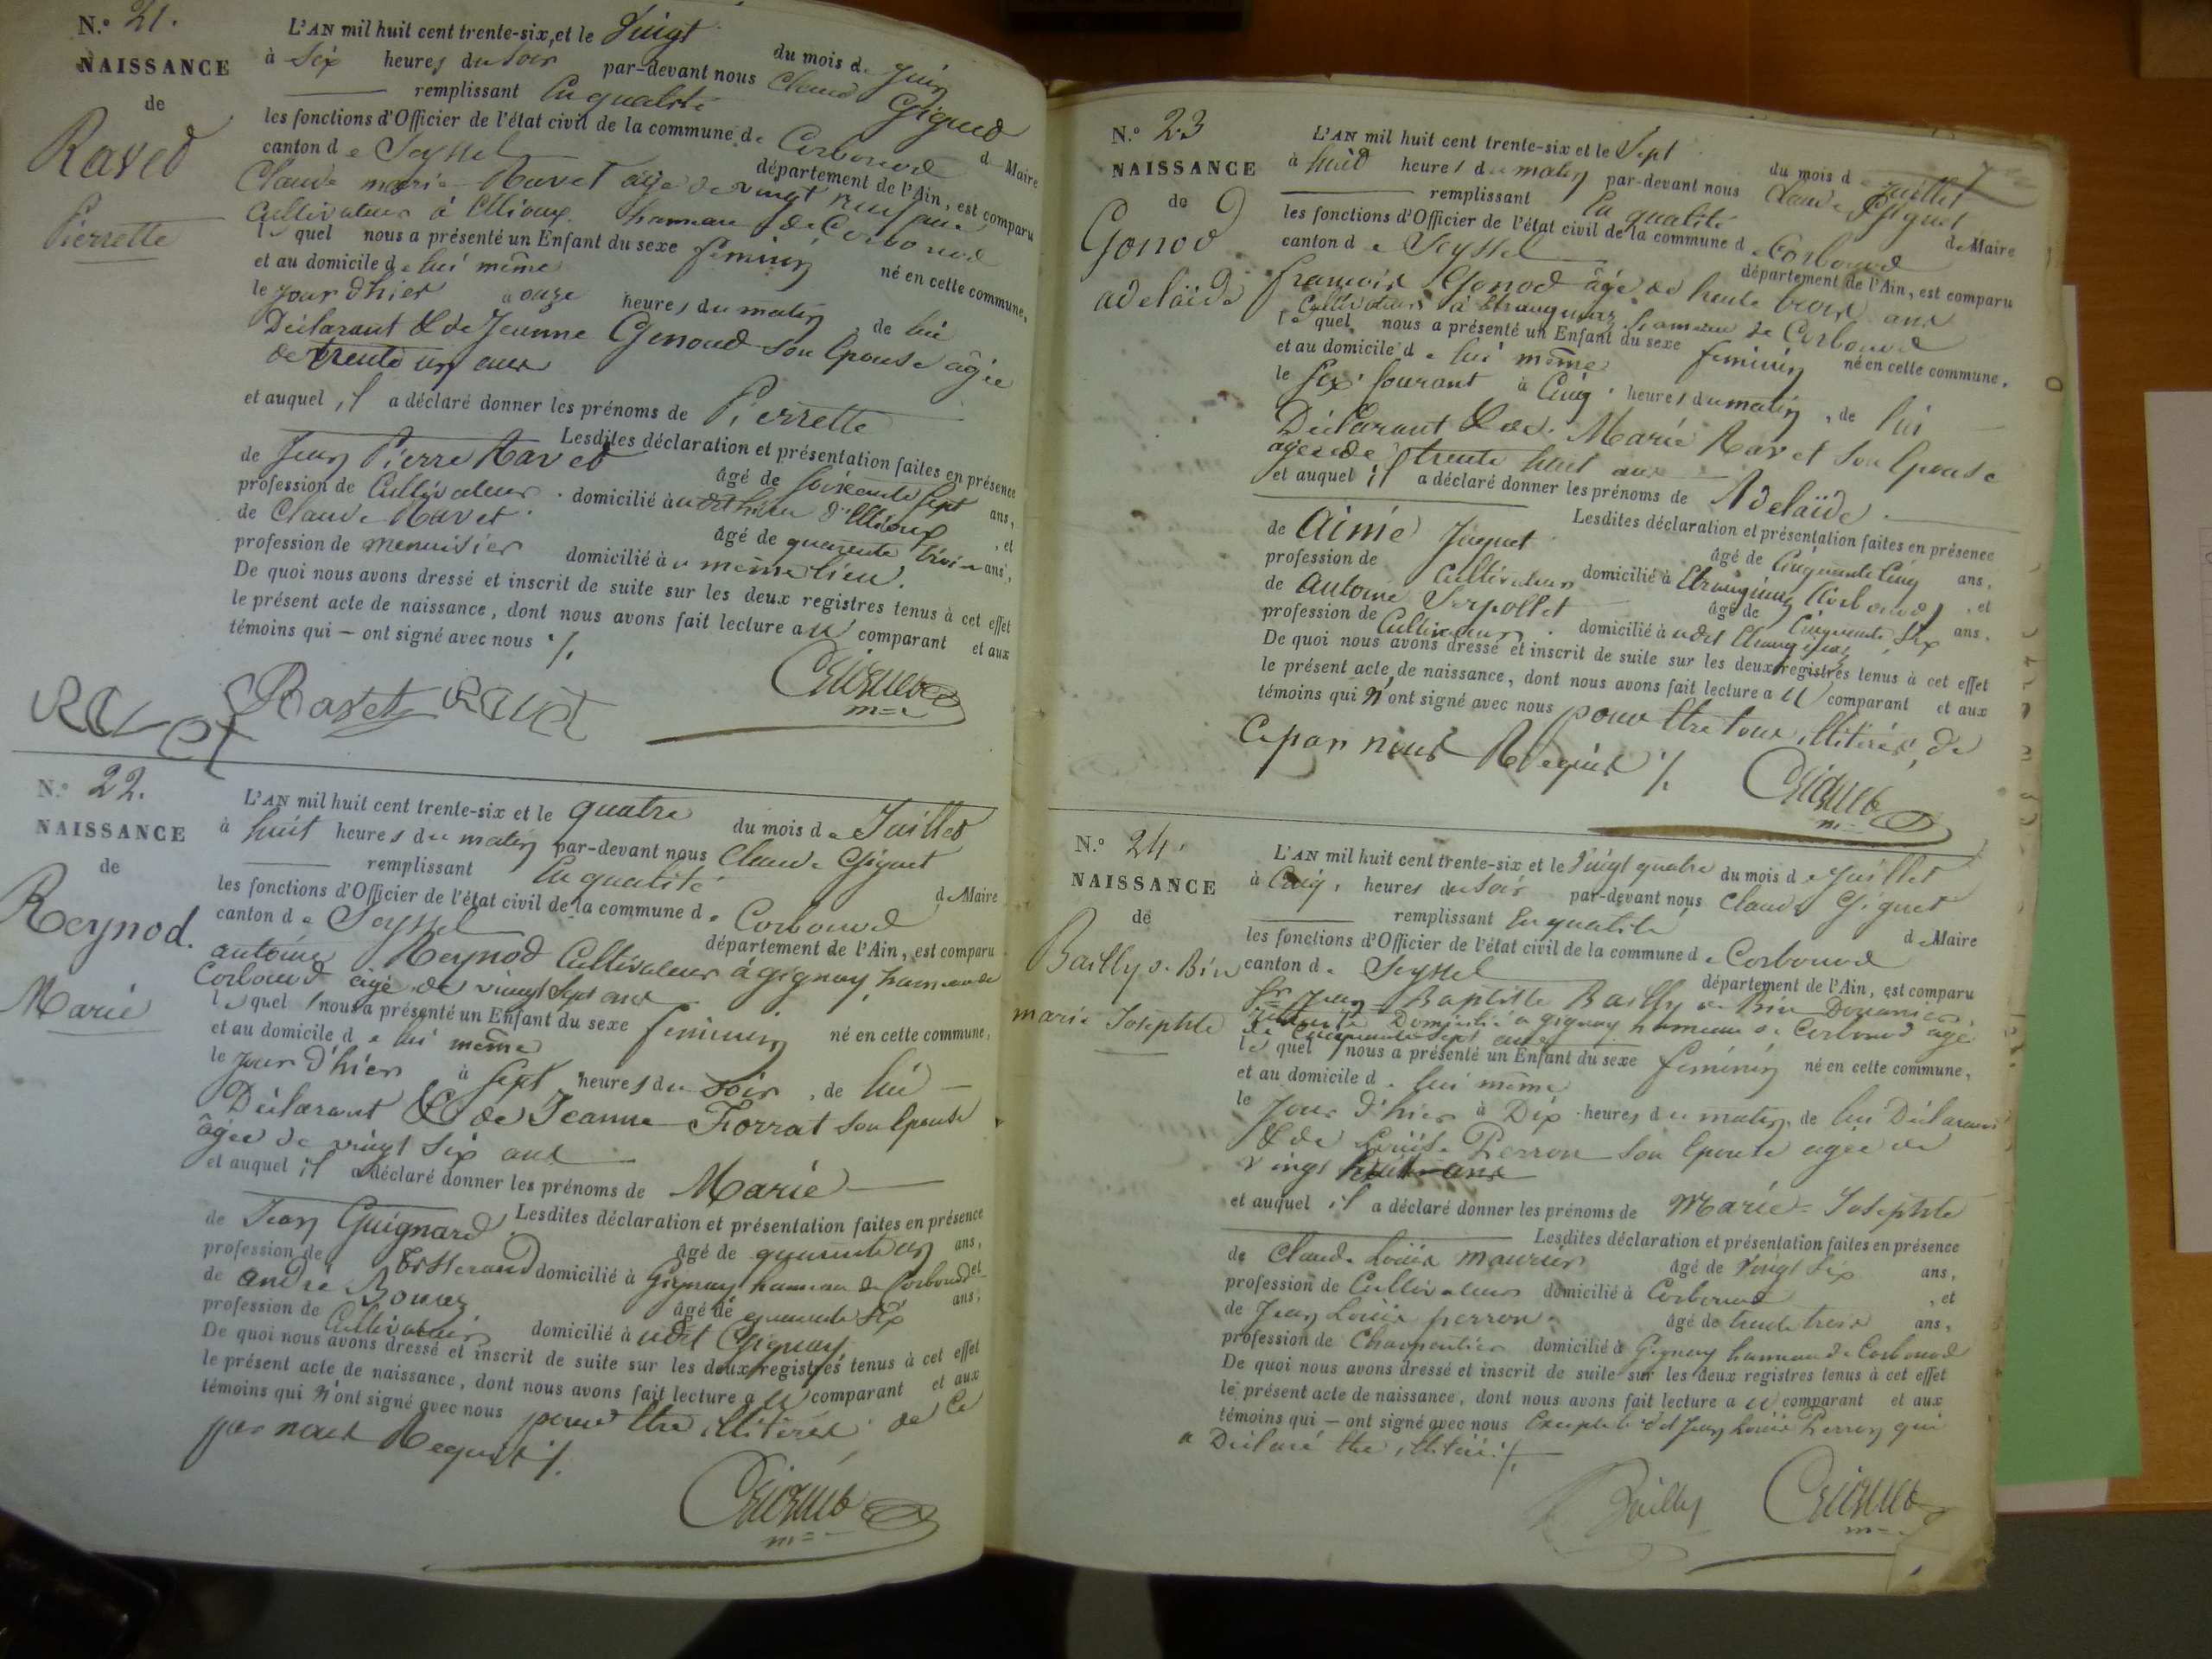 N.° 21.
NAISSANCE
de
Raved
Pierrette
L'AN mil huit cent trente-six, et le Vingt du mois de Juin
à Six heures du Soir par-devant nous Claude Giguet
remplissant En qualité de Maire
les fonctions d'Officier de l'état civil de la commune de Corbonod
canton de Seyssel département de l'Ain, est comparu
Claude marie Ravet âgé de vingt neuf ans
Cultivateur à hameau de Corbonod
lequel nous a présenté un Enfant du sexe feminin né en cette commune,
et au domicile de lui même
le jour d'hier à onze heures du matin, de lui
Déclarant & de Jeanne Genoud son Epouse âgée
de trente un ans
et auquel il a déclaré donner les prénoms de Pierrette
Lesdites déclaration et présentation faites en présence
de Jean Pierre Ravet âgé de soixante sept ans,
profession de Cultivateur domicilié audit lieu , et
de Claude Ravet âgé de quarante trois ans,
profession de menuisier domicilié au même lieu.
De quoi nous avons dressé et inscrit de suite sur les deux registres tenus à cet effet
le présent acte de naissance, dont nous avons fait lecture au comparant et aux
témoins qui — ont signé avec nous ./.
Ravet Ravet Ravet Giguet
m=e
N.° 22.
NAISSANCE
de
Reynod.
Marie
L'AN mil huit cent trente-six et le quatre du mois de Juillet
à huit heures du matin par-devant nous Claude Giguet
remplissant En qualité de Maire
les fonctions d'Officier de l'état civil de la commune de Corbonod
canton de Seyssel département de l'Ain, est comparu
antoine Reynod Cultivateur à gignay hameau de
Corbonod âgé de vingt sept ans
lequel nous a présenté un Enfant du sexe feminin né en cette commune,
et au domicile de lui même
le jour d'hier à sept heures du soir, de lui —
Déclarant & de Jeanne Forrat son Epouse
âgée de vingt six ans
et auquel il a déclaré donner les prénoms de Marie
Lesdites déclaration et présentation faites en présence
de Jean Guignard âgé de quarante un ans,
profession de tisserand domicilié à Gignay hameau de Corbonod et
de andré âgé de quarante six ans,
profession de Cultivateur domicilié audit Gignay
De quoi nous avons dressé et inscrit de suite sur les deux registres tenus à cet effet
le présent acte de naissance, dont nous avons fait lecture au comparant et aux
témoins qui n'ont signé avec nous pour être illitérés de Ce
par nous Requis ./.
Giguet
m=e
N.° 23
NAISSANCE
de
Gonod
adelaïde
L'AN mil huit cent trente-six et le Sept du mois de juillet
à huit heures du matin par-devant nous Claude Giguet
remplissant En qualité de Maire
les fonctions d'Officier de l'état civil de la commune de Corbonod
canton de Seyssel département de l'Ain, est comparu
françois Gonod âgé de trente trois ans
Cultivateur à Etranginaz hameau de Corbonod
lequel nous a présenté un Enfant du sexe feminin né en cette commune,
et au domicile de lui même
le six Courant à Cinq heures du matin, de lui
Déclarant & de Marie Ravet son Epouse
agée de trente huit ans
et auquel il a déclaré donner les prénoms de Adelaïde
Lesdites déclaration et présentation faites en présence
de Aimé Juguet âgé de Cinquante Cinq ans,
profession de Cultivateur domicilié à Etranginaz (Corbonod) , et
de Antoine Serpollet âgé de Cinquante Six ans,
profession de Cultivateur domicilié audit Etranginaz
De quoi nous avons dressé et inscrit de suite sur les deux registres tenus à cet effet
le présent acte de naissance, dont nous avons fait lecture au comparant et aux
témoins qui n'ont signé avec nous pour être tous illitérés, de
Ce par nous Requis ./.
Giguet
m=e
N.° 24.
NAISSANCE
de
Bailly s. Bin
marie Josephte
L'AN mil huit cent trente-six et le Vingt quatre du mois de juillet
à Cinq heures du Soir par-devant nous Claude Giguet
remplissant En qualité de Maire
les fonctions d'Officier de l'état civil de la commune de Corbonod
canton de Seyssel département de l'Ain, est comparu
Sr. Jean Baptiste Bailly Bin Douanier
retraité Domicilié à gignay hameau de Corbonod agé
de Cinquante sept ans
lequel nous a présenté un Enfant du sexe féminin né en cette commune,
et au domicile de lui même
le jour d'hier à Dix heures du matin, de lui Déclarant
& de Louise Perron son Epouse agée de
vingt huit ans
et auquel il a déclaré donner les prénoms de Marie = Josephte
Lesdites déclaration et présentation faites en présence
de Claude Louis maurier âgé de vingt six ans,
profession de Cultivateur domicilié à Corbonod , et
de Jean Louis perron âgé de trente trois ans,
profession de Charpentier domicilié à Gignay hameau de Corbonod
De quoi nous avons dressé et inscrit de suite sur les deux registres tenus à cet effet
le présent acte de naissance, dont nous avons fait lecture au comparant et aux
témoins qui — ont signé avec nous Excepté le dit Jean Louis Perron qui
a Déclaré être illitéré ./.
Bailly Giguet
m=e